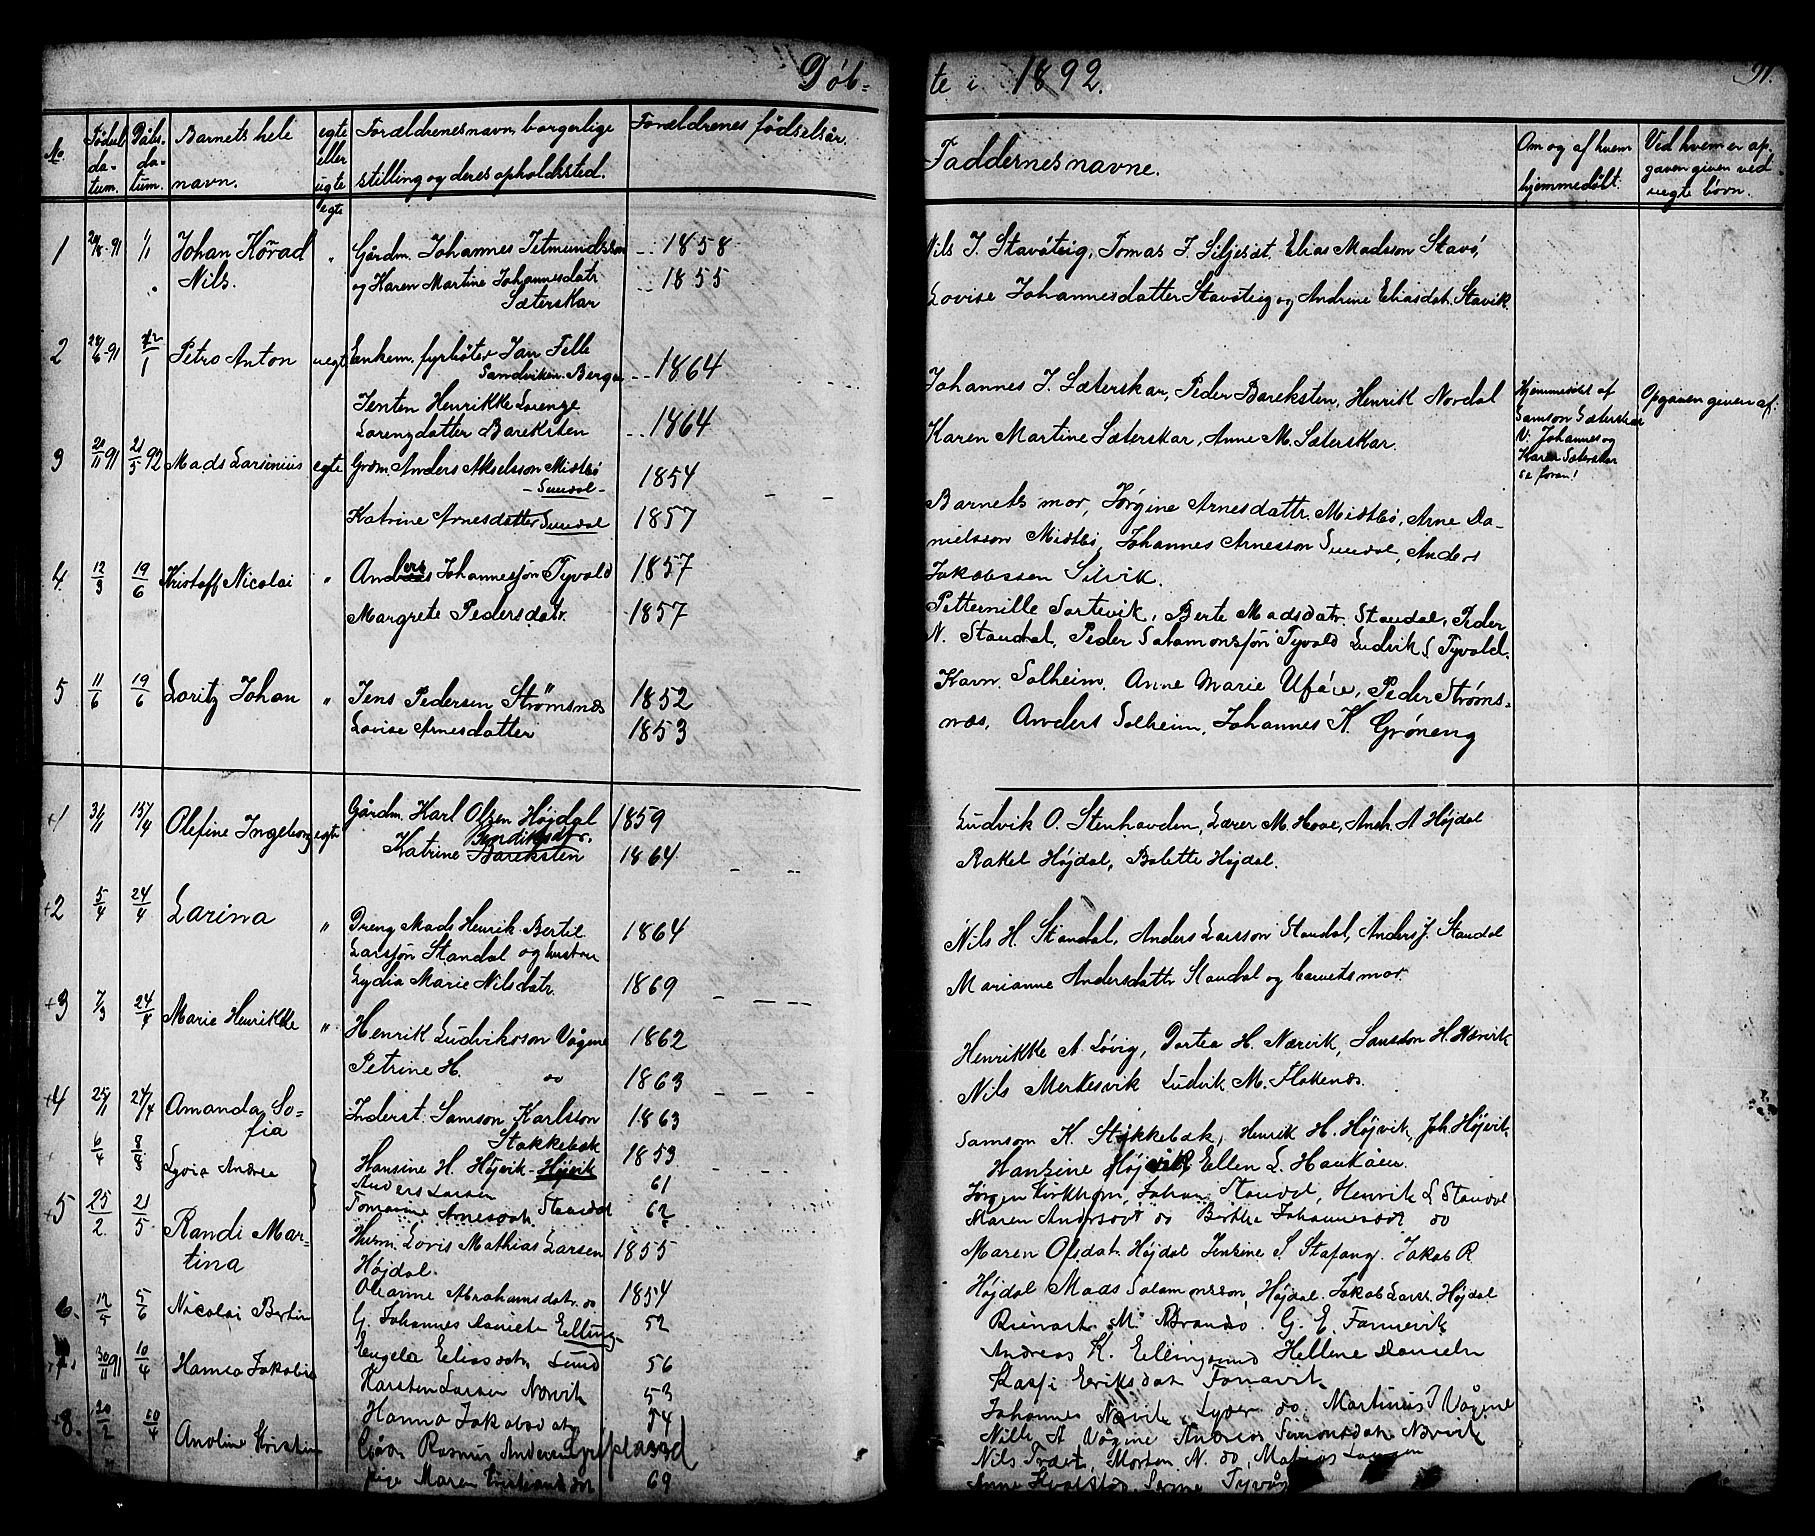 Døb-
te i 1892.
91.
No
Fødsel da- tum.
Dåbs. da- tum.
Barnets hele navn.
egte eller uegte
Forældrenes navn, borgerlige stilling og deres opholdssted.
Forældrenes fødselsår.
Faddernes navne.
Om og af hvem hjemmedøbt.
Ved hvem er op- gaven given ved uegte børn.
egte
1 91 1/1 Johan Nils. " Gårdm. Johannes Tetmundssøn 1858
og Karen Martine Johannesdatr 1855
Sæterskar
Nils J. Stavøteig, Tomas J. Siljesøt. Elias Madsson Stavø,
Lovise Johannesdatter Stavøteig og Andrine Eliasdat. Stavik.
2 91 Petro Anton uegt Enkem. fyrbøter Jan Felle
Sandviken. Bergen 1864
Jenten Henrikke Lorenze
Lorenzdatter Bareksten 1864
Johannes J. Sæterskar, Peder Bareksten, Henrik Nordal
Karen Martine Sæterskar, Anne M. Sæterskar.
Hjemmedøbt af
Samson Sæterskar
V. Johannes og
Karen Sæterskar
se foran!
Opgaven given af:
3 20/11 91 21/5 92 Mads Larsinius egte Grdm. Anders Akselsson Midtbø 1854
- Sundal -
Katrine Arnesdatter Sundal 1857
Barnets mor, Jørgine Arnesdattr. Midtbø, Arne Da-
nielsson Midtbø, Johannes Arnesson Sundal, Anders
Jakobssen Silvik.
4 12/3 19/6 Kristoff Nicolai " Anders Johannessøn Tyvold 1857
Margrete Pedersdatr. 1857
Petternille Sortevik, Berte Madsdatr. Standal, Peder
N. Standal, Peder Salamonssøn Tyvold Ludvik S Tyvold.
5 11/6 19/6 Loritz Johan " Jens Pedersen Strømsnæs 1852
Lovise Arnesdatter 1853
Karn. Solheim. Anne Marie Uføre, Peder Strøms-
næs, Anders Solheim, Johannes K. Grøneng
+1 Olefine Ingeborg egte Gårdm. Karl Olsen Højdal 1859
Katrine Bareksten 1864
Ludvik O. Stenhovden, Lærer M. Hove, Andr. A Højdal
Rakel Højdal, Bolette Højdal.
+2 5/4 24/4 Larina " Dreng Mads Henrik Bertil 1864
Larssøn Standal og hustru
Lydia Marie Nilsdatr. 1869
Nils H. Standal, Anders Larsson Standal, Anders J. Standal
Marianne Andersdattr Standal og barnets mor.
+3 7/3 24/4 Marie Henrikke " Henrik Ludviksson Vågene 1862
Petrine H. do 1863
Henrikke A. Løvig, Dortea H. Nærvik, Samson H. Nærvik
Nils Merkesvik Ludvik M. Flokenæs
+4 25/11 24/4 Amanda So-
fia
Inderst. Samson Karlsson 1863
Stokkebæk
Hansine H. Højvik - Højvik 1853
Samson K. Stokkebæk, Henrik H. Højvik, Joh. Højvik
Hansine Højvik Ellen L. Haukåen.
6/4 8/8 Lydia Andrea
Anders Larsen 61
Tomine Arnesdatr. Standal 62
Jørgen Kirkhorn, Johan Standal, Henrik L Standal
Maren Andersdt do Berthe Johannesdt do
+5 25/2. 21/5 Randi Mar-
tina
Husm. Lovis Mathias Larsen 1855
Højdal.
Oleanne Abrahamsdatr. do 1854
Maren Olsdat. Højdal Jensine S. Stafang. Jakob R.
Højdal Mads Salamonsson, Højdal. Jakob Lars. Højdal
6. 12/5 5/6 Nicolai Bertin G. Johannes Danielsen Elling- 52
Engela Eliasdatr sund 56
Reinart M. Brandsø G. E. Fannevik
Andreas K. Ellingsund Hellene Danielsn
Kaspr. Eriksdat
+7. 30/11 91 10/4 Hansa Jakobie Karsten Larsen Nørvik 53
Hanna Jakobsdatr 54
Johannes Nøvik Lyder do Martinus J Vågene
Nille A Vågene Andreas Simonsdat Nørvik
+8. 20/2 10/4 Anoline Kristine Rasmus Andersen
pige Maren 69
Nils Træet, Morten N. do, Matias
Anne Kvalstad